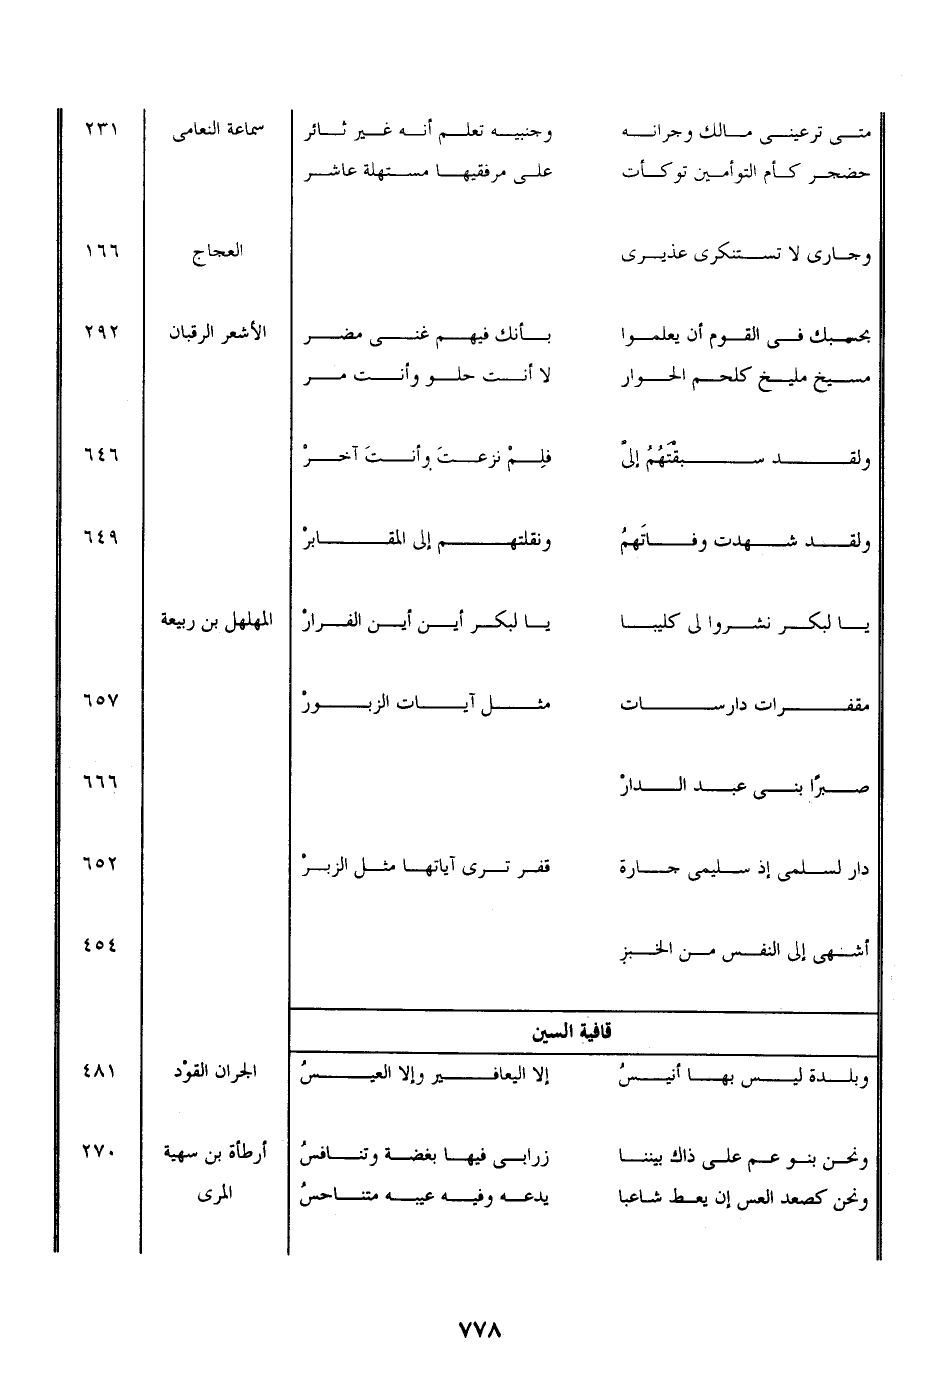 متى ترعينى مالك وجرانه وجنبيه تعلم أنه غير ثائر سماعة النعامى ٢٣١
حضجر كأم التوأمين توكأت على مرفقيها مستهلة عاشر
وجارى لا تستنكرى عذيرى العجاج ١٦٦
بحسبك فى القوم أن يعلموا بأنك فيهم غنى مضر الأشعر الرقبان ٢٩٢
مسيخ مليخ كلحم الحوار لا أنت حلو وأنت مر
ولقد سبقْتَهُمُ إلىَّ فلِمْ نزعتَ وأنتَ آخرْ ٦٤٦
ولقد شهدت وفاتَهمُ ونقلتهم إلى المقابرْ ٦٤٩
يا لبكر نشروا لى كليبا يا لبكر أين أين الفرارْ المهلهل بن ربيعة
مقفرات دارسات مثل آيات الزبورْ ٦٥٧
صبرًا بنى عبد الدارْ ٦٦٦
دار لسلمى إذ سليمى جارة قفر ترى آياتها مثل الزبرْ ٦٥٢
أشهى إلى النفس من الخبزِ ٤٥٤
قافية السين
وبلدة ليس بها أنيسُ إلا اليعافير وإلا العيسُ الجران القوْد ٤٨١
ونحن بنو عم على ذاك بيننا زرابى فيها بغضة وتنافسُ أرطأة بن سهية ٢٧٠
ونحن كصعد العس إن يعط شاعبا يدعه وفيه عيبه متناحسُ المرى
٧٧٨